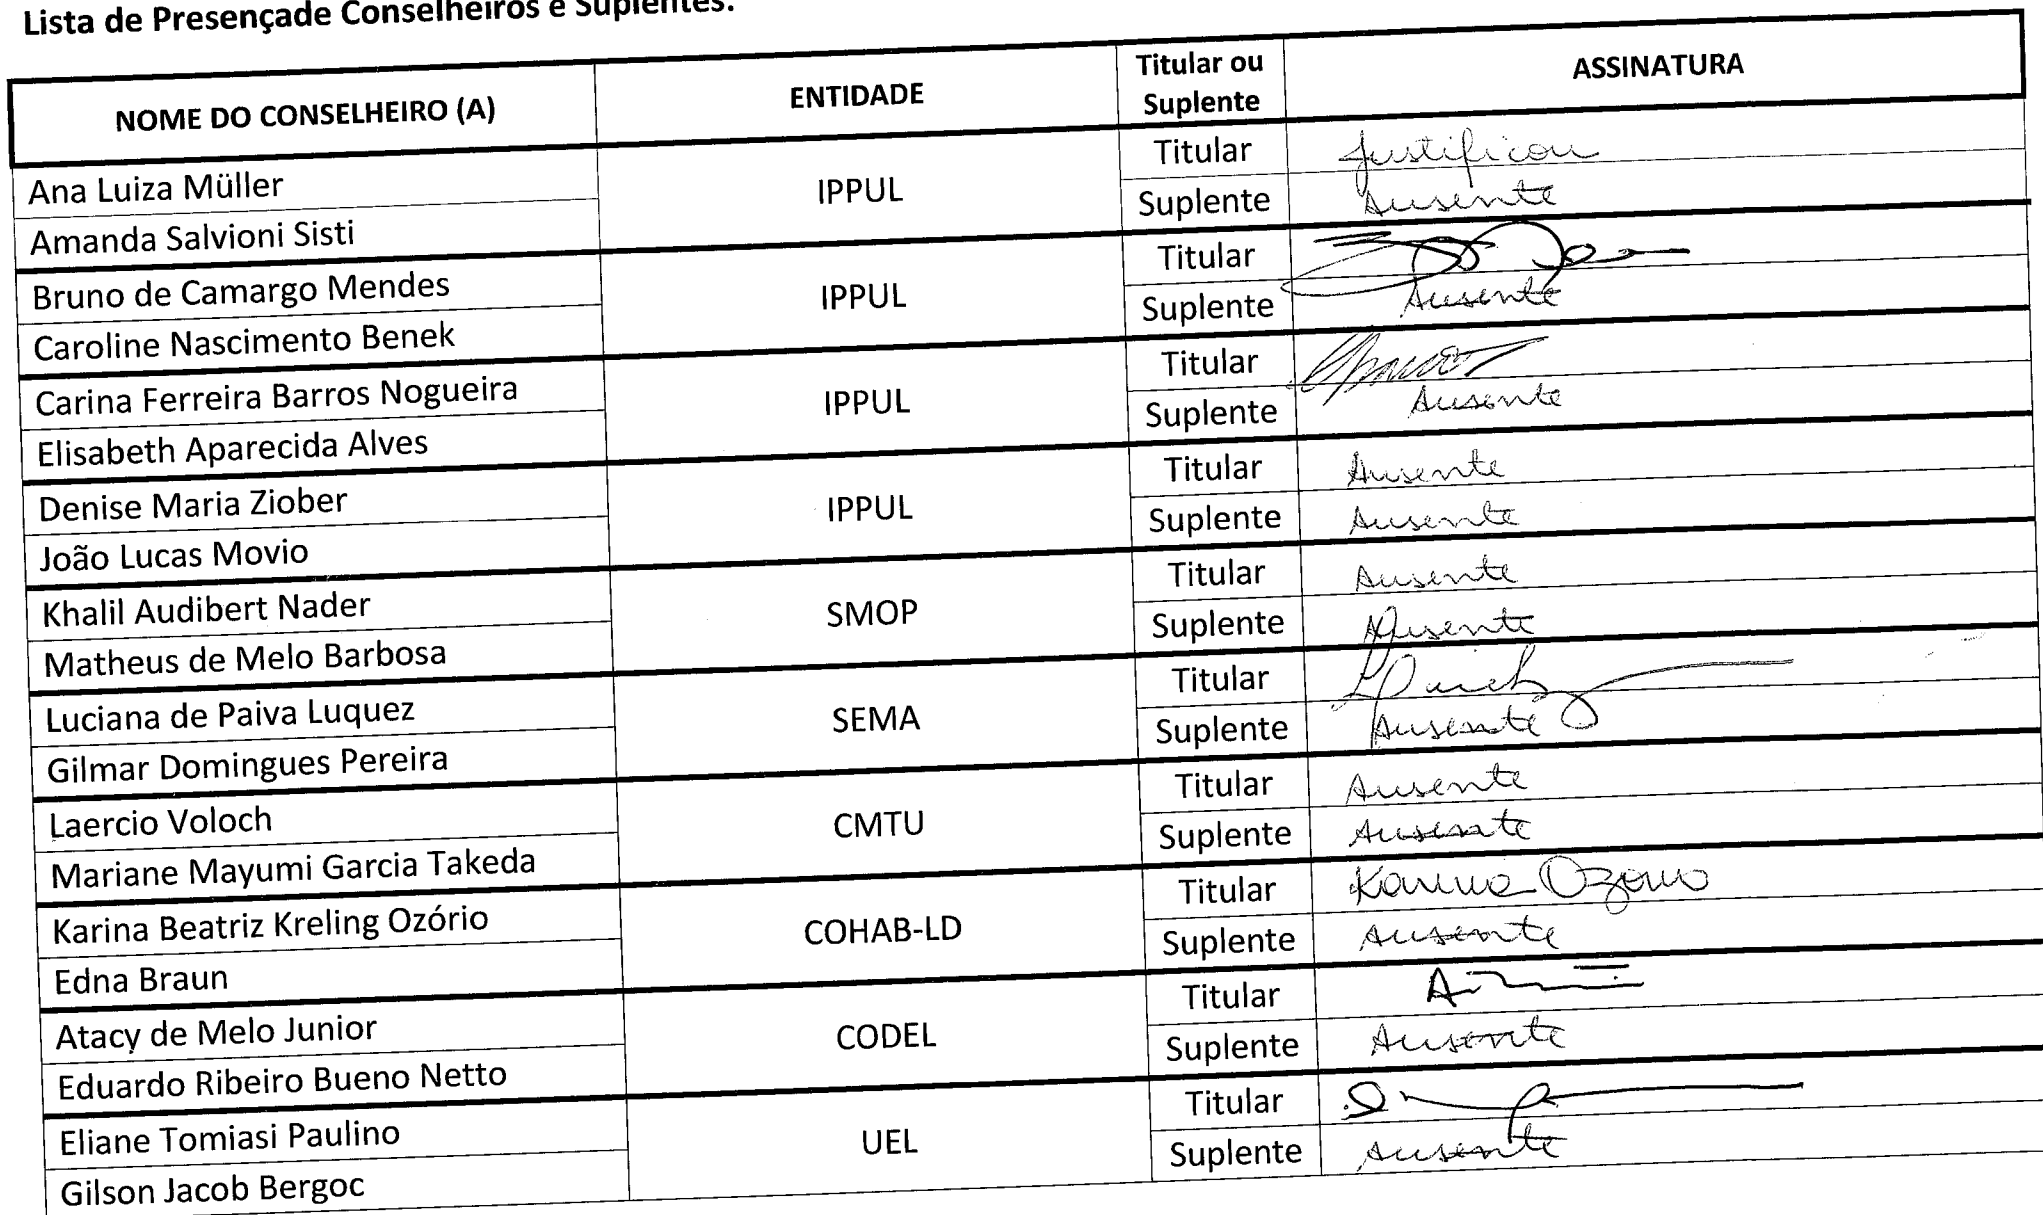 Lista de Presençade Conselheiros e Suplentes:
NOME DO CONSELHEIRO (A) ENTIDADE Titular ou Suplente ASSINATURA
Ana Luiza Müller IPPUL Titular Justificou
Amanda Salvioni Sisti Suplente Ausente
Bruno de Camargo Mendes IPPUL Titular
Caroline Nascimento Benek Suplente Ausente
Carina Ferreira Barros Nogueira IPPUL Titular
Elisabeth Aparecida Alves Suplente Ausente
Denise Maria Ziober IPPUL Titular Ausente
João Lucas Movio Suplente Ausente
Khalil Audibert Nader SMOP Titular Ausente
Matheus de Melo Barbosa Suplente Ausente
Luciana de Paiva Luquez SEMA Titular
Gilmar Domingues Pereira Suplente Ausente
Laercio Voloch CMTU Titular Ausente
Mariane Mayumi Garcia Takeda Suplente Ausente
Karina Beatriz Kreling Ozório COHAB-LD Titular Karina Ozorio
Edna Braun Suplente Ausente
Atacy de Melo Junior CODEL Titular
Eduardo Ribeiro Bueno Netto Suplente Ausente
Eliane Tomiasi Paulino UEL Titular
Gilson Jacob Bergoc Suplente Ausente